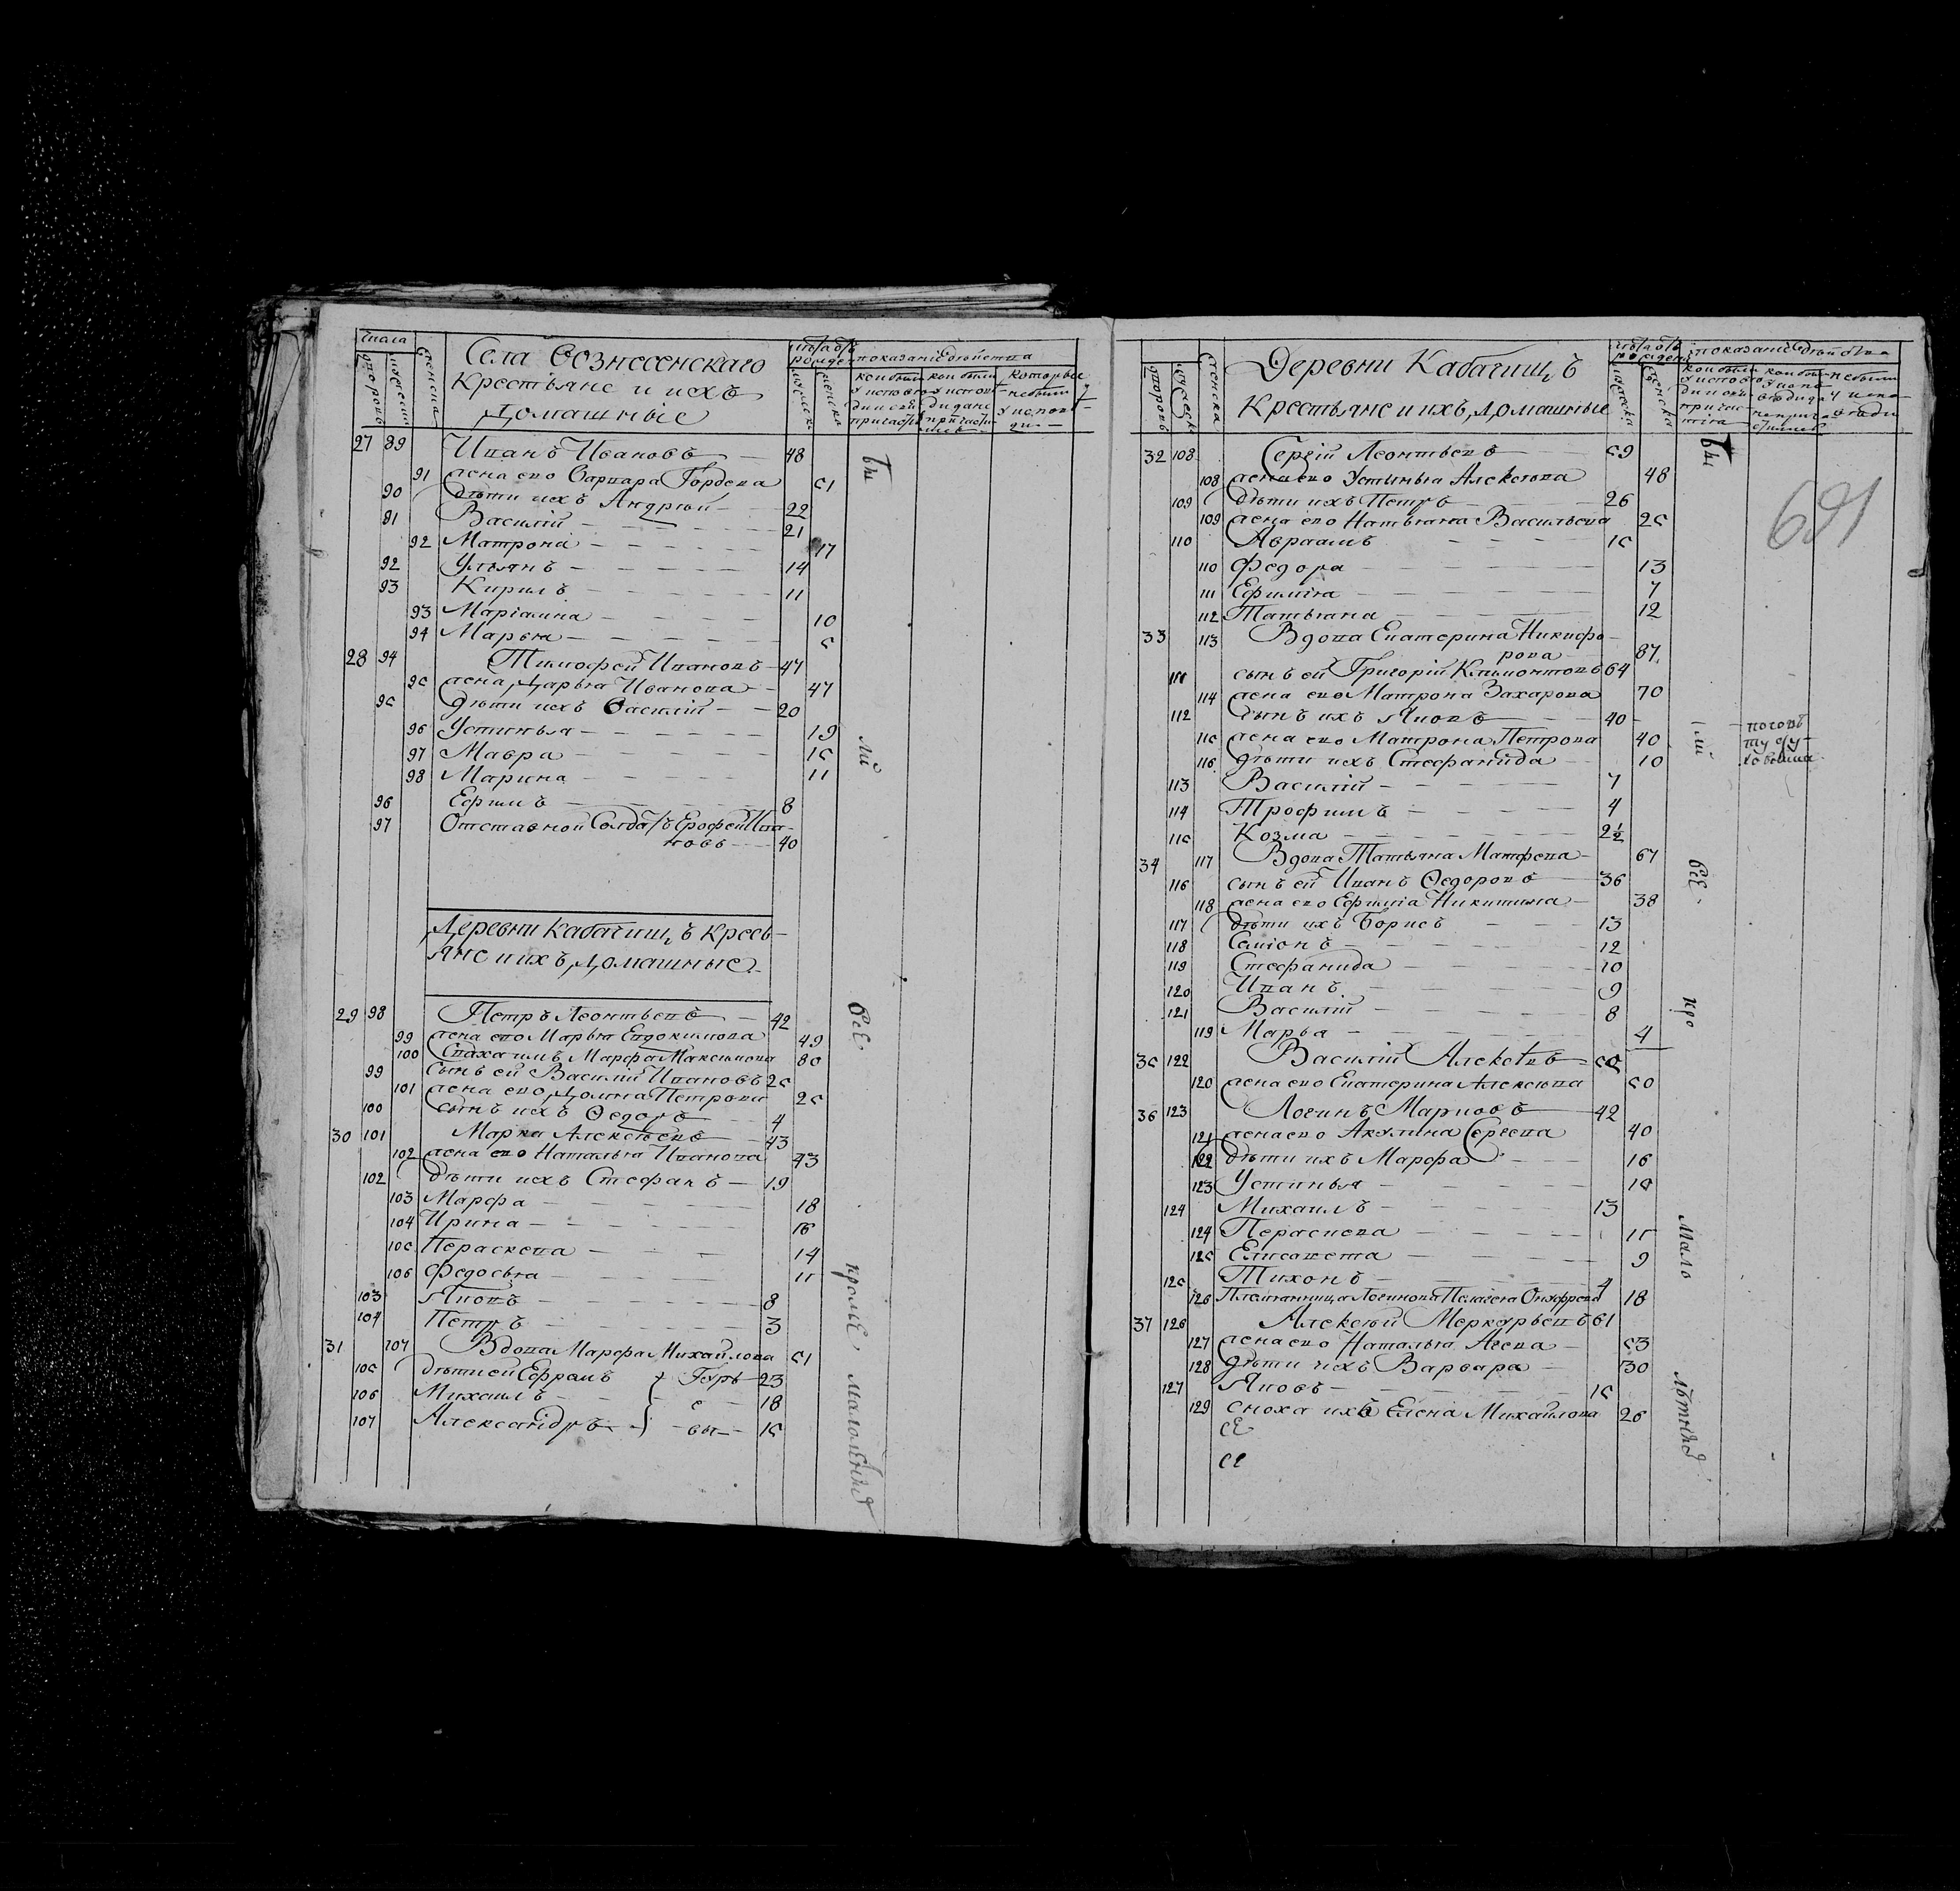 числа
дворовъ
мужеска
женска
Села Вознесенскаго
Крестьяне и ихъ
Домашные
показание действа
мужеска
женска
27 89 Иванъ Ивановъ 48
91 жена ево Варвара Гордеева 51
90 дѣти ихъ Андрѣй 22
91 Василій 21
92 Матрона 17
92 Ульянъ 14
93 Кирилъ 11
93 Маріамна 10
94 Марья 5
28 94 Тимофей Ивановъ 47
95 жена Дарья Иванова 47
95 дѣти ихъ Василій 20
96 Устинья 19
97 Мавра 15
98 Марина 11
96 Ефимъ 8
97 Отставной Солдатъ Ерофей Ива-
новъ 40
Деревни Кабачищъ Кресть-
яне и ихъ Домашные
29 98 Петръ Леонтьевъ 42
99 жена ево Марья Евдокимова 49
100 Сваха имъ Марфа Максимова 80
99 Сынъ ей Василій Ивановъ 25
101 жена ево Домна Петрова 25
100 сынъ ихъ Ѳедоръ 4
30 101 Марка Алексѣевъ 43
102 жена ево Наталья Иванова 43
102 дѣти ихъ Стефанъ 19
103 Марфа 18
104 Ирина 16
105 Параскева 14
106 Федосья 11
103 Яковъ 8
104 Петръ 3
31 107 Вдова Марфа Михайлова 51
105 дѣти ей Ефремъ 23
106 Михаилъ 18
107 Александръ 15
Гурь
е
вы
бы
ли
всѣ
кромѣ
малолѣтныхъ
Деревни Кабачищъ
Крестьяне и ихъ Домашные
показание действа
691
32 108 Сергій Леонтьевъ 59
108 жена ево Устинья Алексѣева 48
109 дѣти ихъ Петръ 26
109 жена ево Татьяна Васильева 25
110 Авраамъ 15
110 Федора 13
111 Ефимія 7
112 Татьяна 12
33 113 Вдова Екатерина Никифо-
рова 87
111 сынъ ей Григорій Климонтовъ 64
114 жена ево Матрона Захарова 70
112 сынъ ихъ Яковъ 40
115 жена ево Матрона Петрова 40
116 дѣти ихъ Стефанида 10
113 Василій 7
114 Трофимъ 4
115 Козма 2½
34 117 Вдова Татьяна Матфеева 67
116 сынъ ей Иванъ Ѳедоровъ 36
118 жена ево Ефимія Никитина 38
117 дѣти ихъ Борисъ 13
118 Симіонъ 12
119 Стефанида 10
120 Иванъ 9
121 Василій 8
119 Марья 4
35 122 Василій Алексѣевъ
120 жена ево Екатерина Алексѣева 50
36 123 Логинъ Марковъ 42
121 жена ево Акулина Сергеева 40
122 дѣти ихъ Марфа 16
123 Устинья
124 Михаилъ 13
124 Пераскева 11
125 Елисавета 9
125 Тихонъ 4
126 Племянница Логинова Пелагея Онуфрева 18
37 126 Алексѣй Меркурьевъ 61
127 жена ево Наталья Агеева 53
128 дѣти ихъ Варвара 30
127 Яковъ 15
129 сноха ихъ Елена Михайлова 26
бы
ли
всѣ
кро
мало
лѣтныхъ